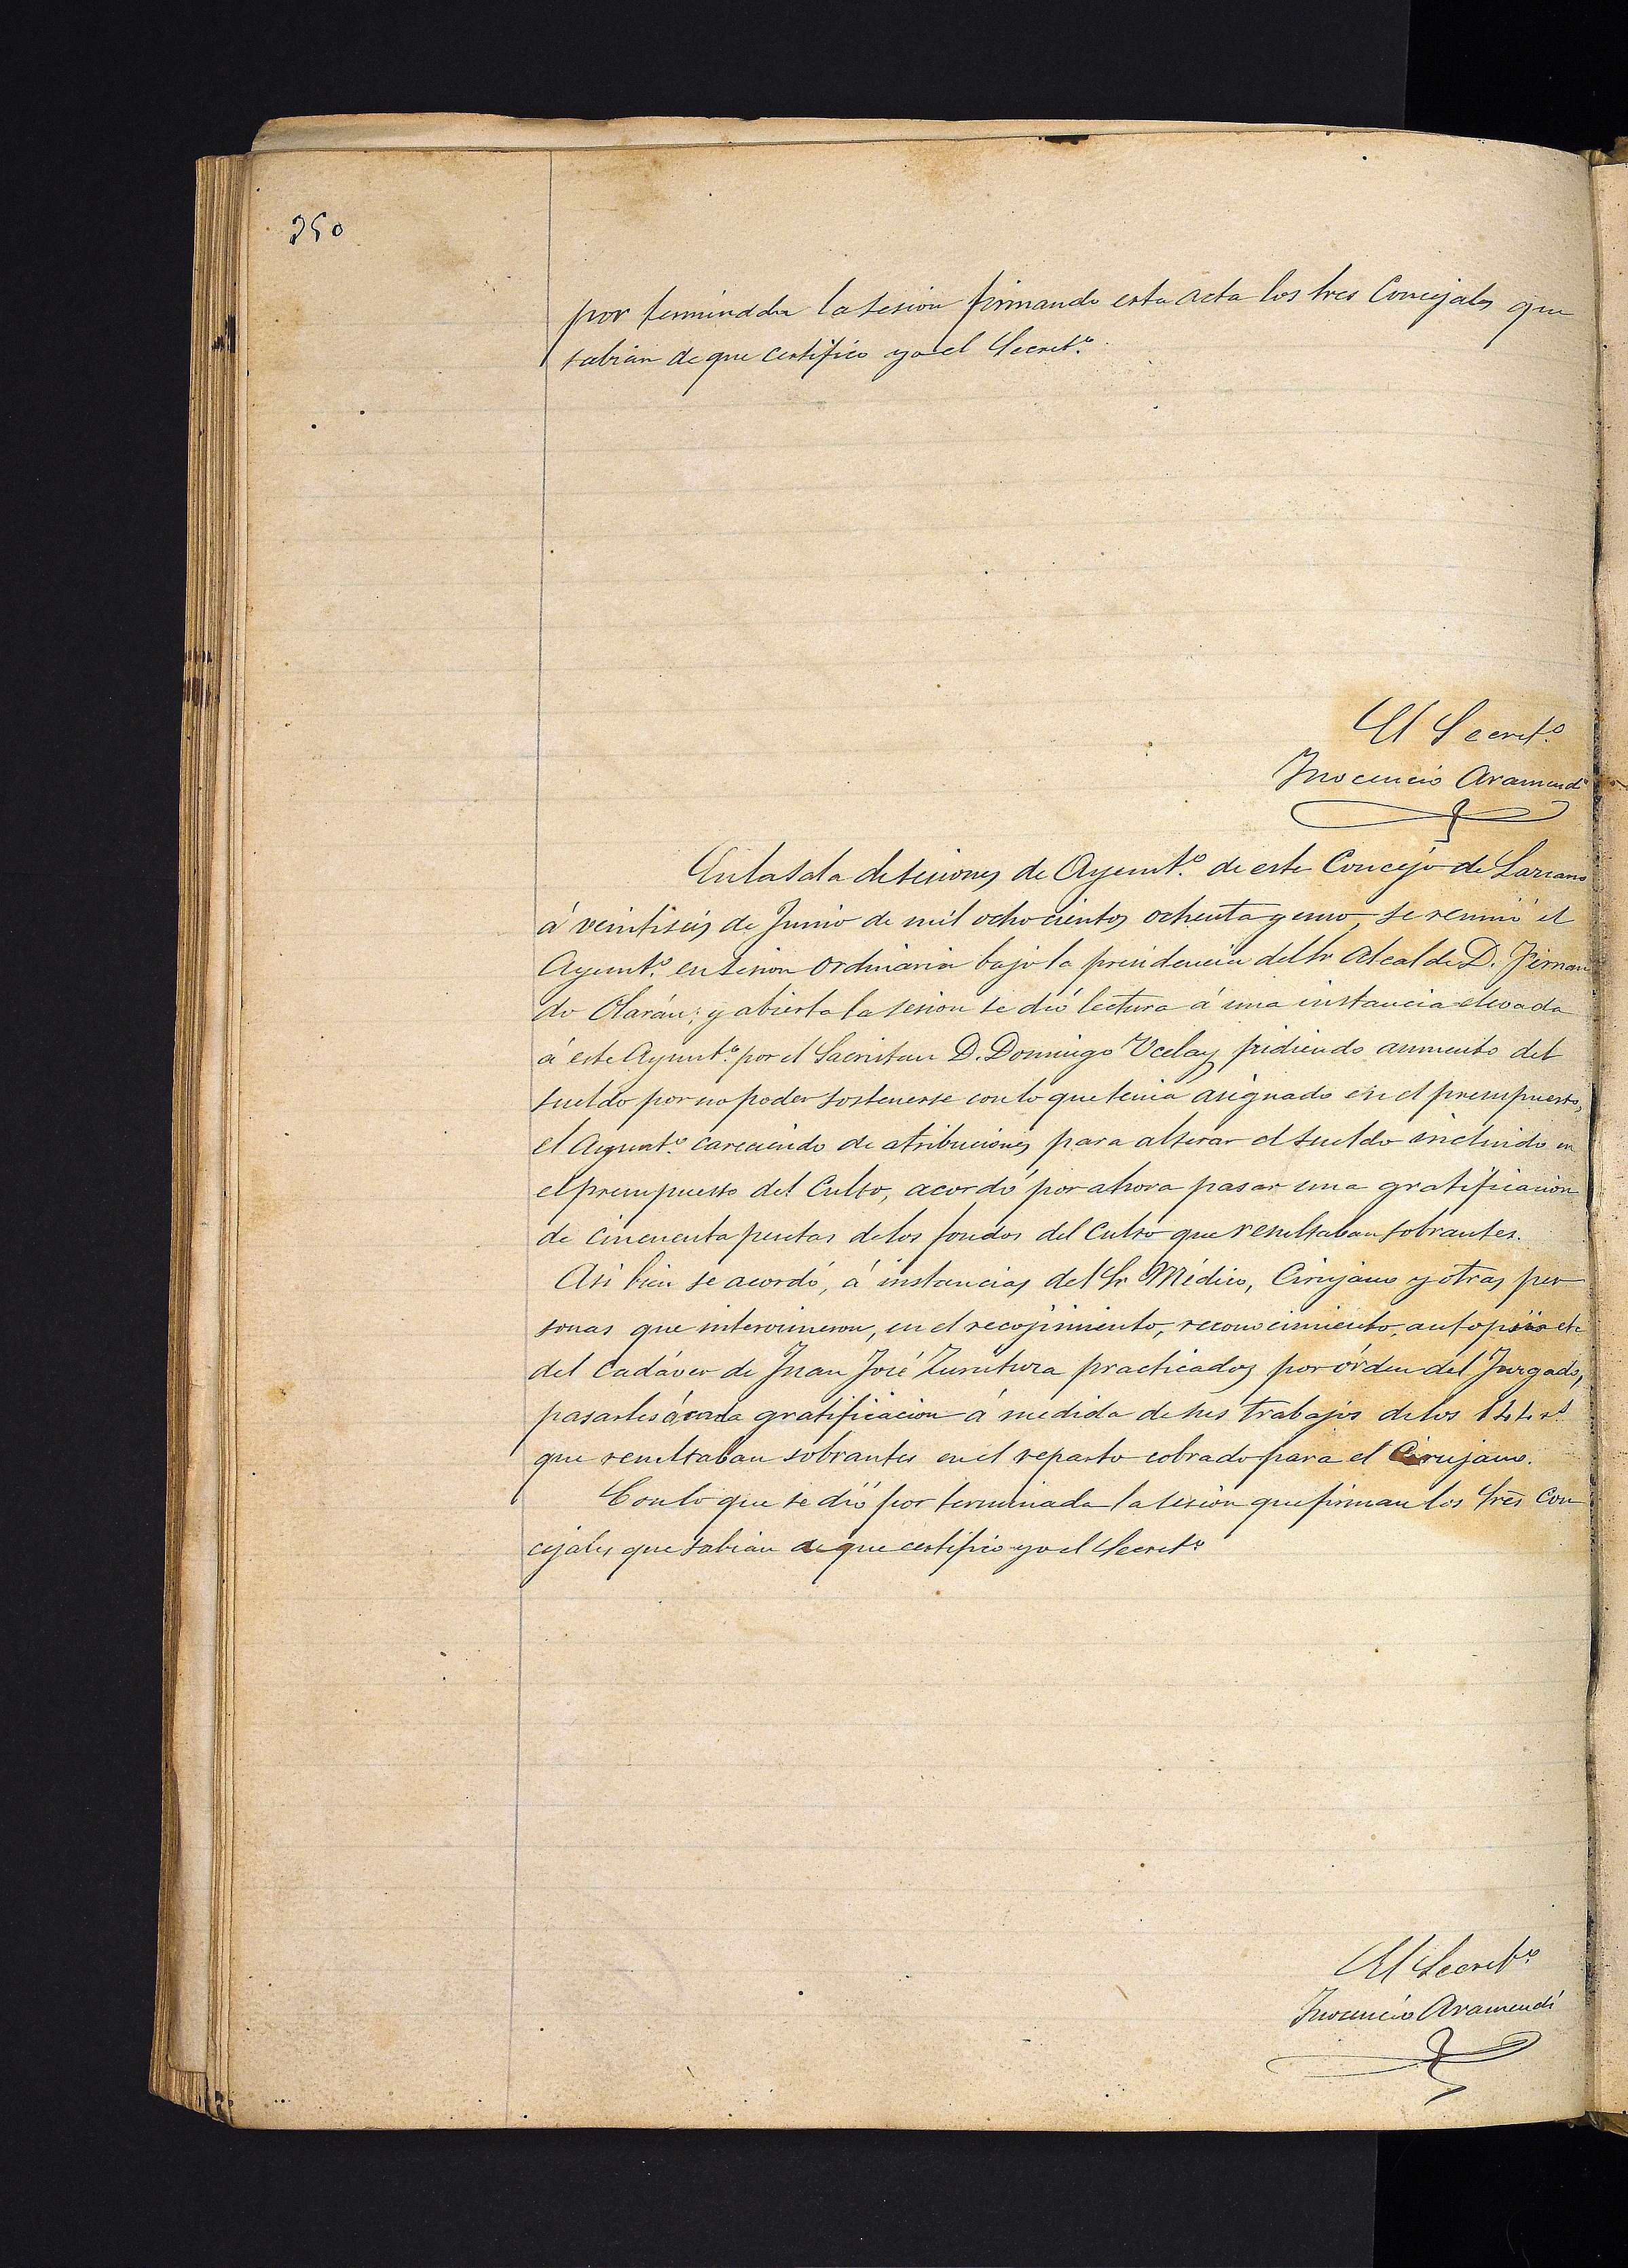 250
por terminada la sesion firmando esta acta los tres Concejales que
sabian de que certifico yo el Secret.º
El Secret.º
Inocencio Aramendi
En la sala de sesiones de Ayunt.º de este Concejo de Lazcano
á veintiseis de Junio de mil ochocientos ochenta y uno, se reunió el
Ayunt.º en sesion ordinaria bajo la presidencia del Sr Alcalde D. Fernan
do Olarán; y abierta la sesion se dió lectura á una instancia elevada
á este Ayunt.º por el Sacristan D. Domingo Ucelay pidiendo aumento del
sueldo por no poder sostenerse con lo que tenia asignado en el presupuesto,
el Ayunt.º careciendo de atribuciones para alterar el sueldo incluido en
el presupuesto del Culto, acordó por ahora pasar una gratificacion
de cincuenta pesetas de los fondos del Culto que resultaban sobrantes.
Asi bien se acordó, á instancias del Sr Médico, Cirujano y otras per
sonas que intervinieron, en el recojimiento, reconocimiento, autopsia etc
del cadáver de Juan José Zurutuza practicados por órden del Juzgado,
pasarles á cada gratificacion á medida de sus trabajos de los 144 rs
que resultaban sobrantes en el reparto cobrado para el Cirujano.
Con lo que se dió por terminada la sesion que firman los tres Con
cejales que sabian de que certifico yo el Secret.º
El Secret.º
Inocencio Aramendi